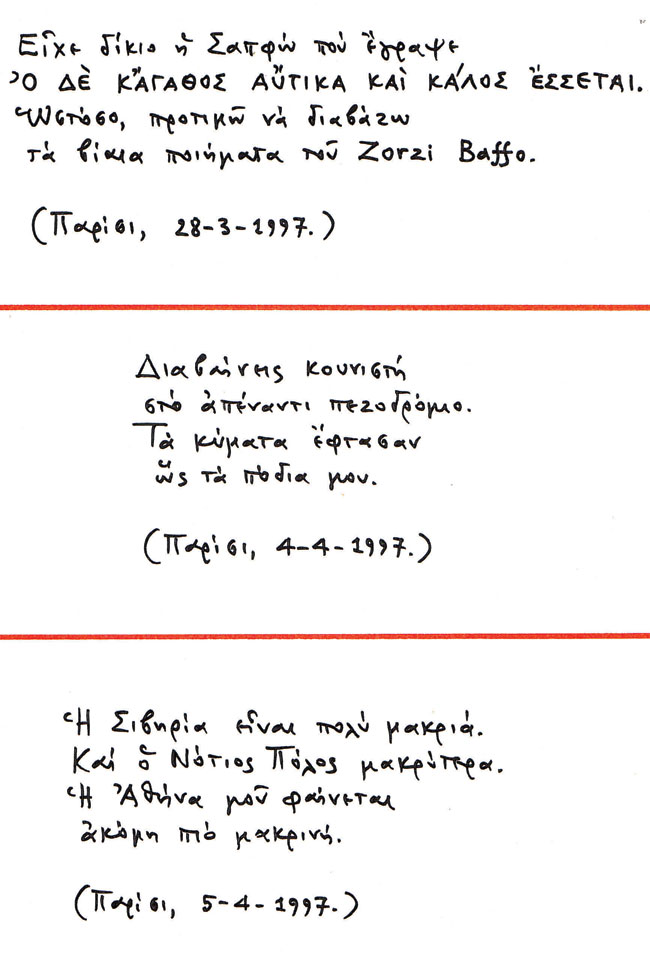 Εἶχε δίκιο ἡ Σαπφὼ ποὺ ἔγραψε
Ὁ ΔῈ ΚἈΓΑΘΟΣ ΑὔΤΙΚΑ ΚΑῚ ΚΆΛΟΣ ἜΣΣΕΤΑΙ.
Ὡστόσο, προτιμῶ νὰ διαβάζω
τὰ βίαια ποιήματα τοῦ Zorzi Baffo.
(Παρίσι, 28-3-1997.)
Διαβαίνεις κουνιστὴ
στὸ ἀπέναντι πεζοδρόμιο.
Τὰ κύματα ἔφτασαν
ὣς τὰ πόδια μου.
(Παρίσι, 4-4-1997.)
Ἡ Σιβηρία εἶναι πολὺ μακριά.
Καὶ ὁ Νότιος Πόλος μακρύτερα.
Ἡ Ἀθήνα μοῦ φαίνεται
ἀκόμη πιὸ μακρινή.
(Παρίσι, 5-4-1997.)